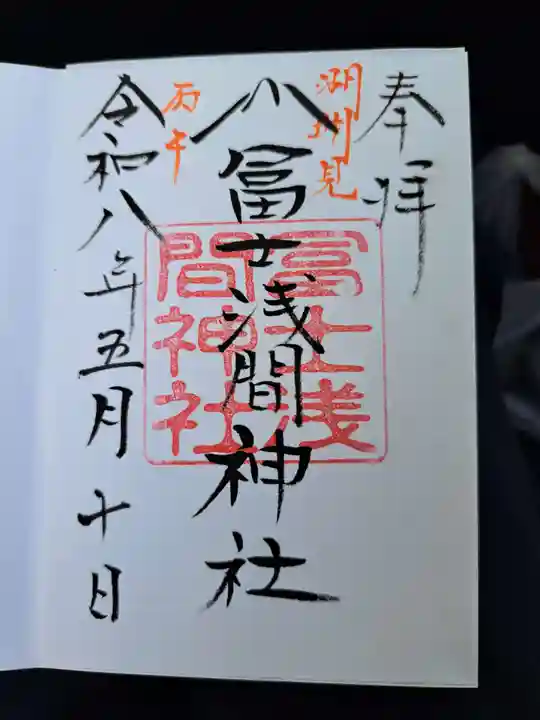 奉拝
小冨士浅間神社
冨士浅
間神社
丙午
令和八年五月十日